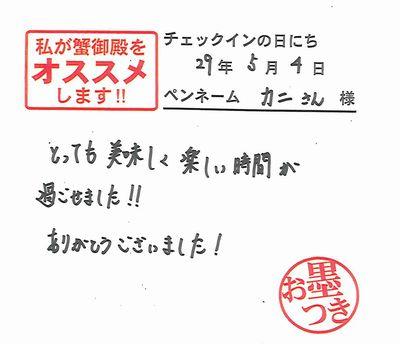 私が蟹御殿を
オススメ
します!!
チェックインの日にち
29年 5月 4日
ペンネーム カニさん 様
とっても美味しく楽しい時間が
過ごせました!!
ありがとうございました!
お墨つき